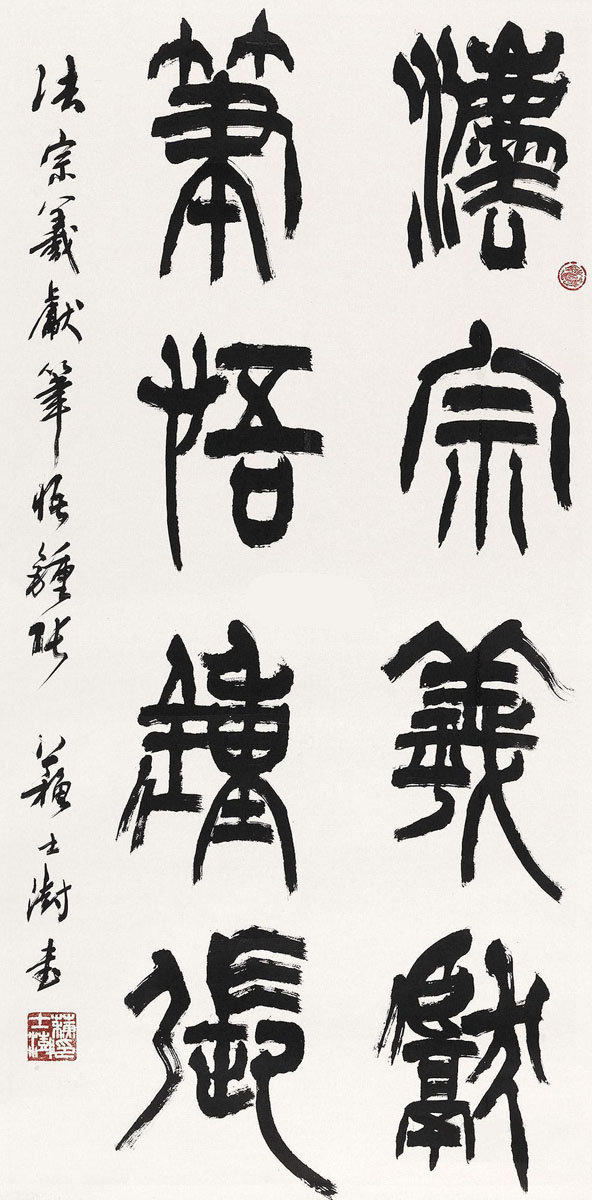 灋宗羲獻
筆悟鍾張
法宗羲獻筆悟鍾張 蘇士澍書
蘇士澍印